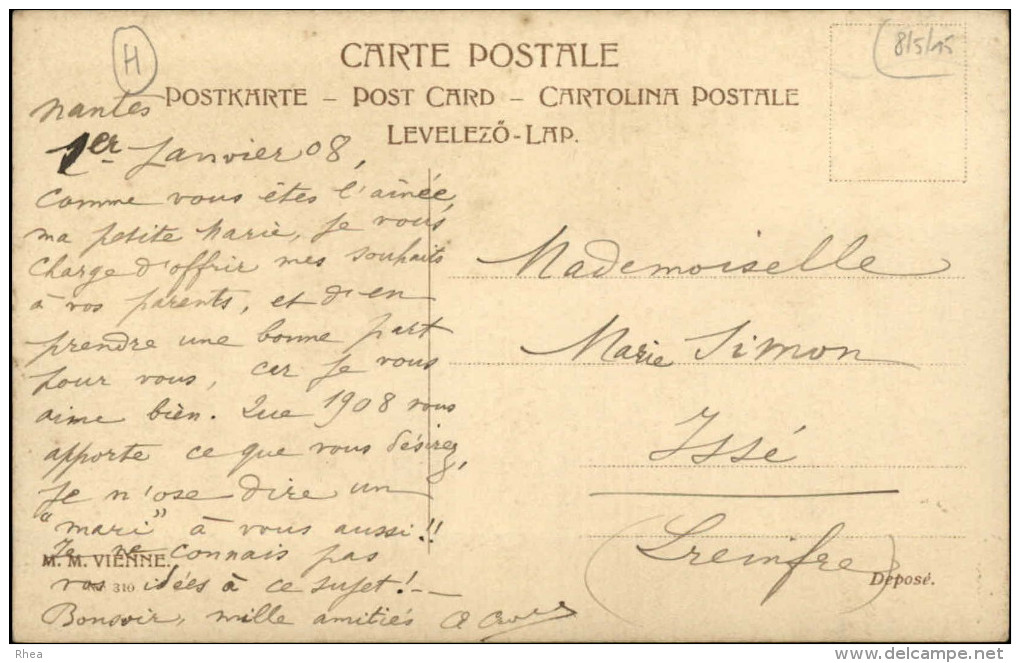 H
8/5/15
CARTE POSTALE
POSTKARTE – POST CARD – CARTOLINA POSTALE
LEVELEZŐ-LAP.
Nantes
1er Janvier 08,
Comme vous êtes l'aînée,
ma petite Marie, je vous
charge d'offrir mes souhaits
à vos parents, et d'en
prendre une bonne part
pour vous, car je vous
aime bien. Que 1908 vous
apporte ce que vous désirez,
je n'ose dire un
"mari" à vous aussi!!
Je ne connais pas
vos idées à ce sujet! –
Bonsoir, mille amitiés
Mademoiselle
Marie Simon
Issé
(Loreinfre)
M. M. VIENNE.
310
Déposé.
Rhea
delcampe.net